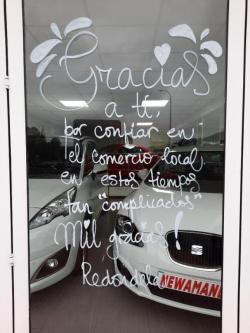 Gracias
a ti,
por confiar en
el comercio local,
en estos tiempos
tan "complicados"
Mil gracias!
Redondela
NEWAMANI